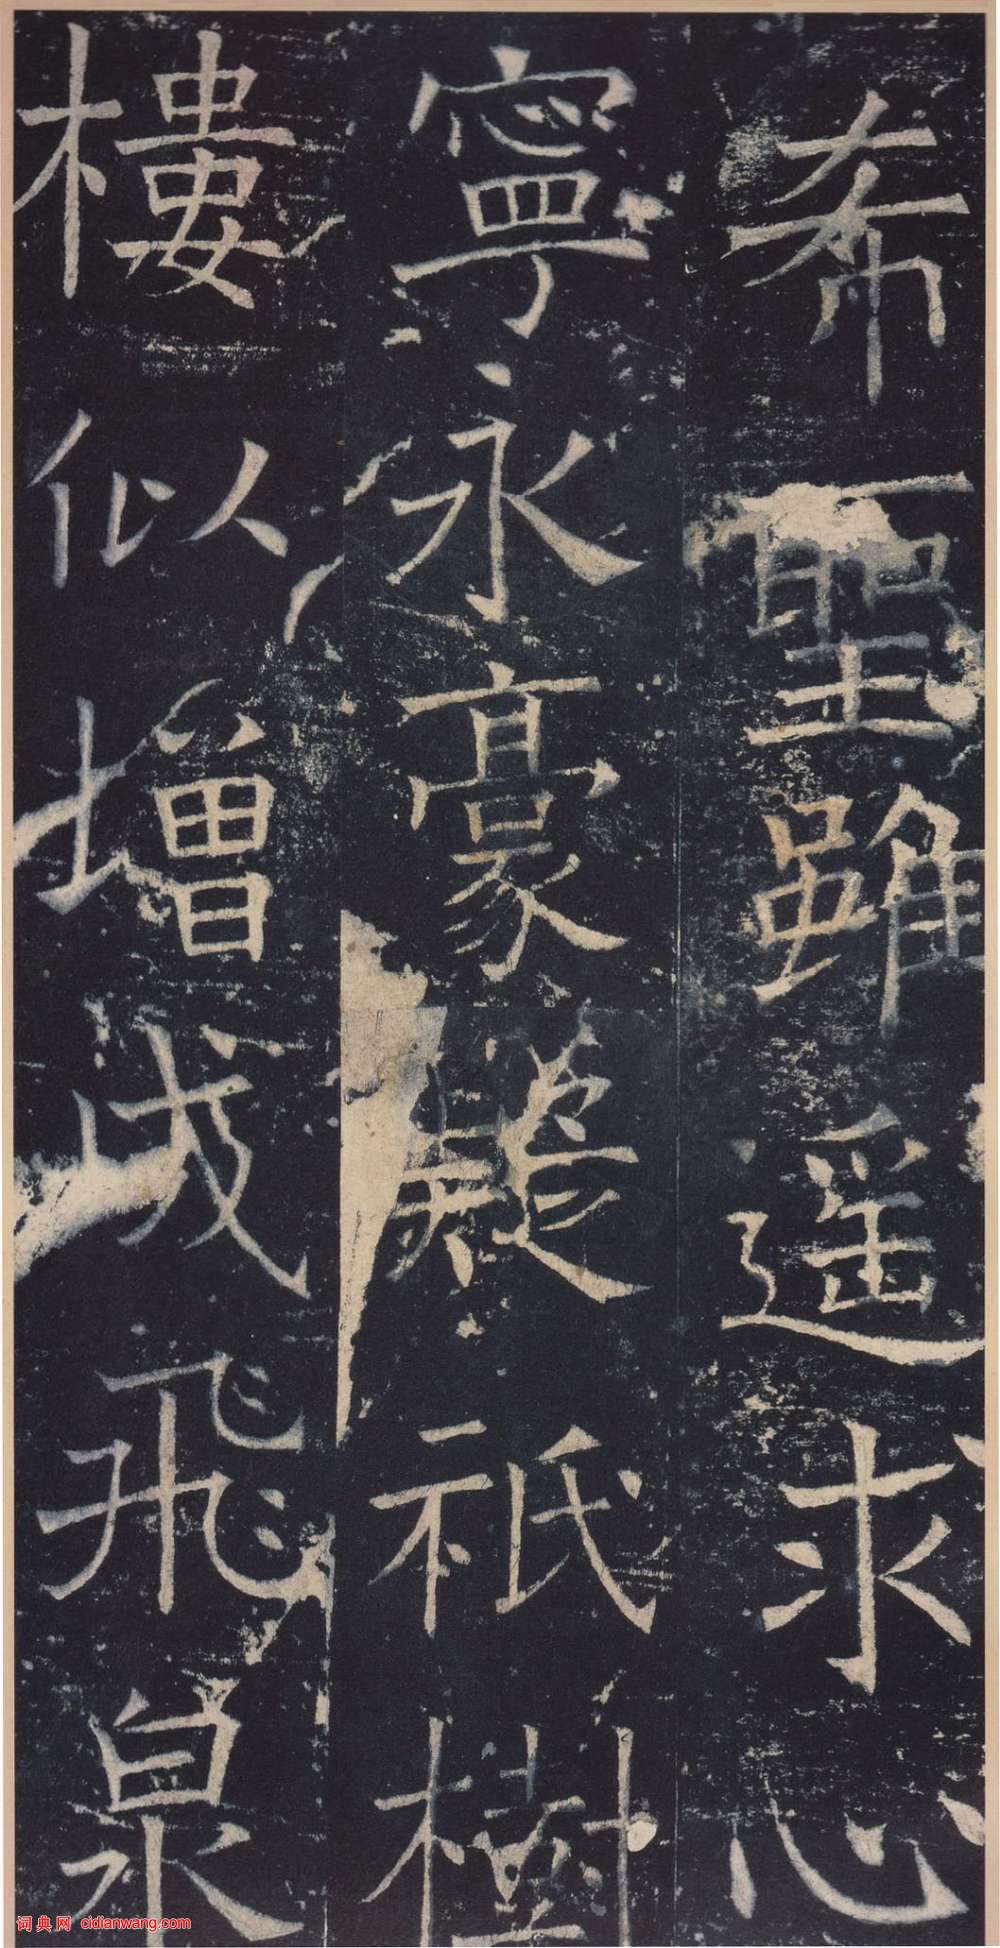 希聖雖遥求心
寧永豪疑祇樹
樓似增成飛泉
词典网 cidianwang.com